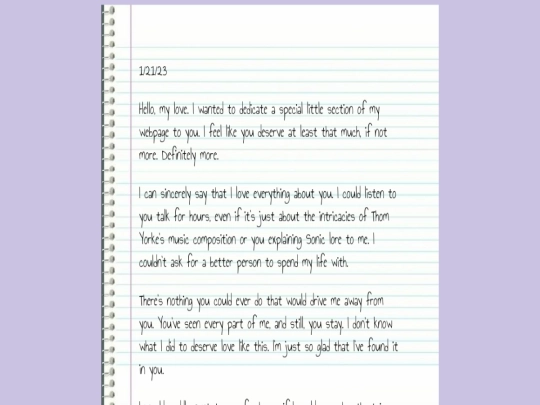 1/21/23
Hello, my love. I wanted to dedicate a special little section of my
webpage to you. I feel like you deserve at least that much, if not
more. Definitely more.
I can sincerely say that I love everything about you. I could listen to
you talk for hours, even if it's just about the intricacies of Thom
Yorke's music composition or you explaining Sonic lore to me. I
couldn't ask for a better person to spend my life with.
There's nothing you could ever do that would drive me away from
you. You've seen every part of me, and still, you stay. I don't know
what I did to deserve love like this. I'm just so glad that I've found it
in you.